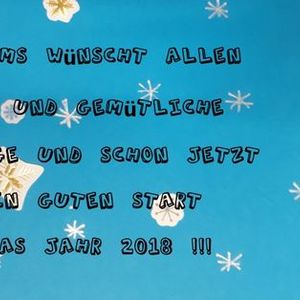 WÜNSCHT ALLEN
UND GEMÜTLICHE
UND SCHON JETZT
GUTEN START
JAHR 2018 !!!